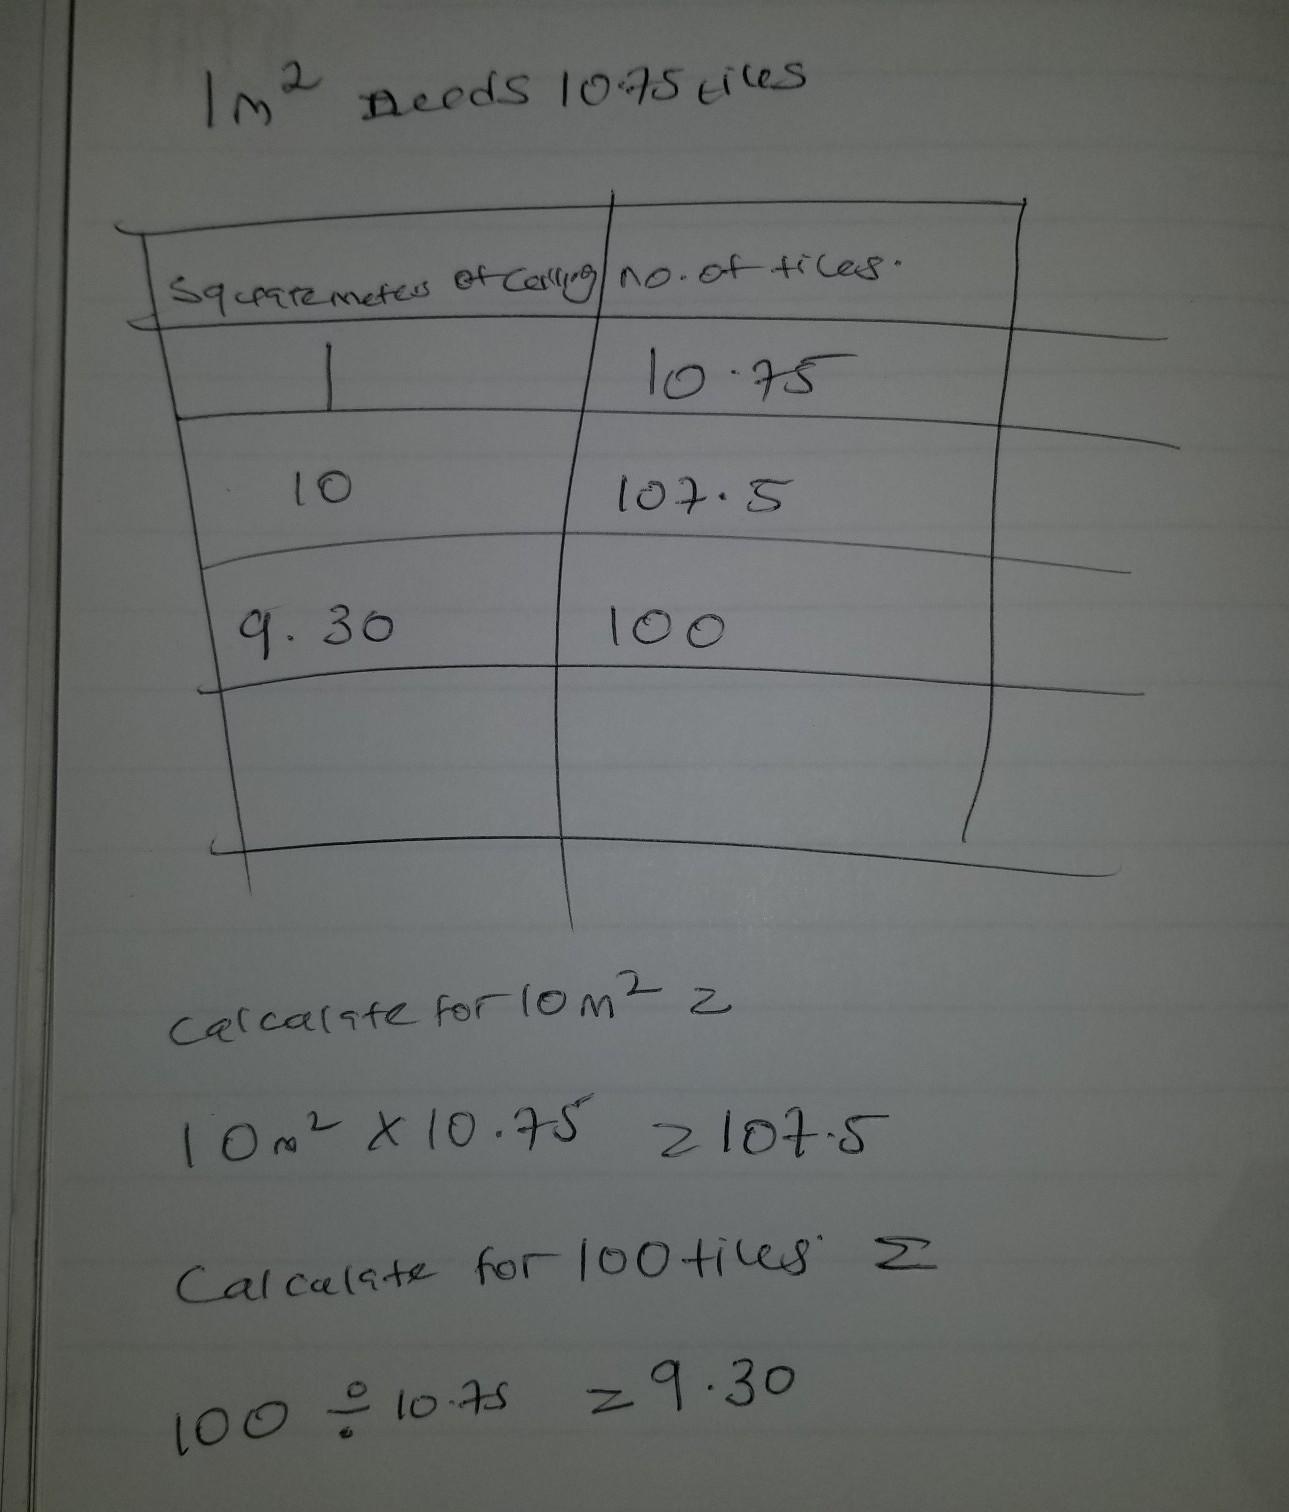 1m² needs 10.75 tiles
Squaremeters of Ceiling no. of tiles.
1 10.75
10 107.5
9.30 100
calcalate for 10m² =
10m² x 10.75 = 107.5
Calculate for 100 tiles =
100 ÷ 10.75 = 9.30